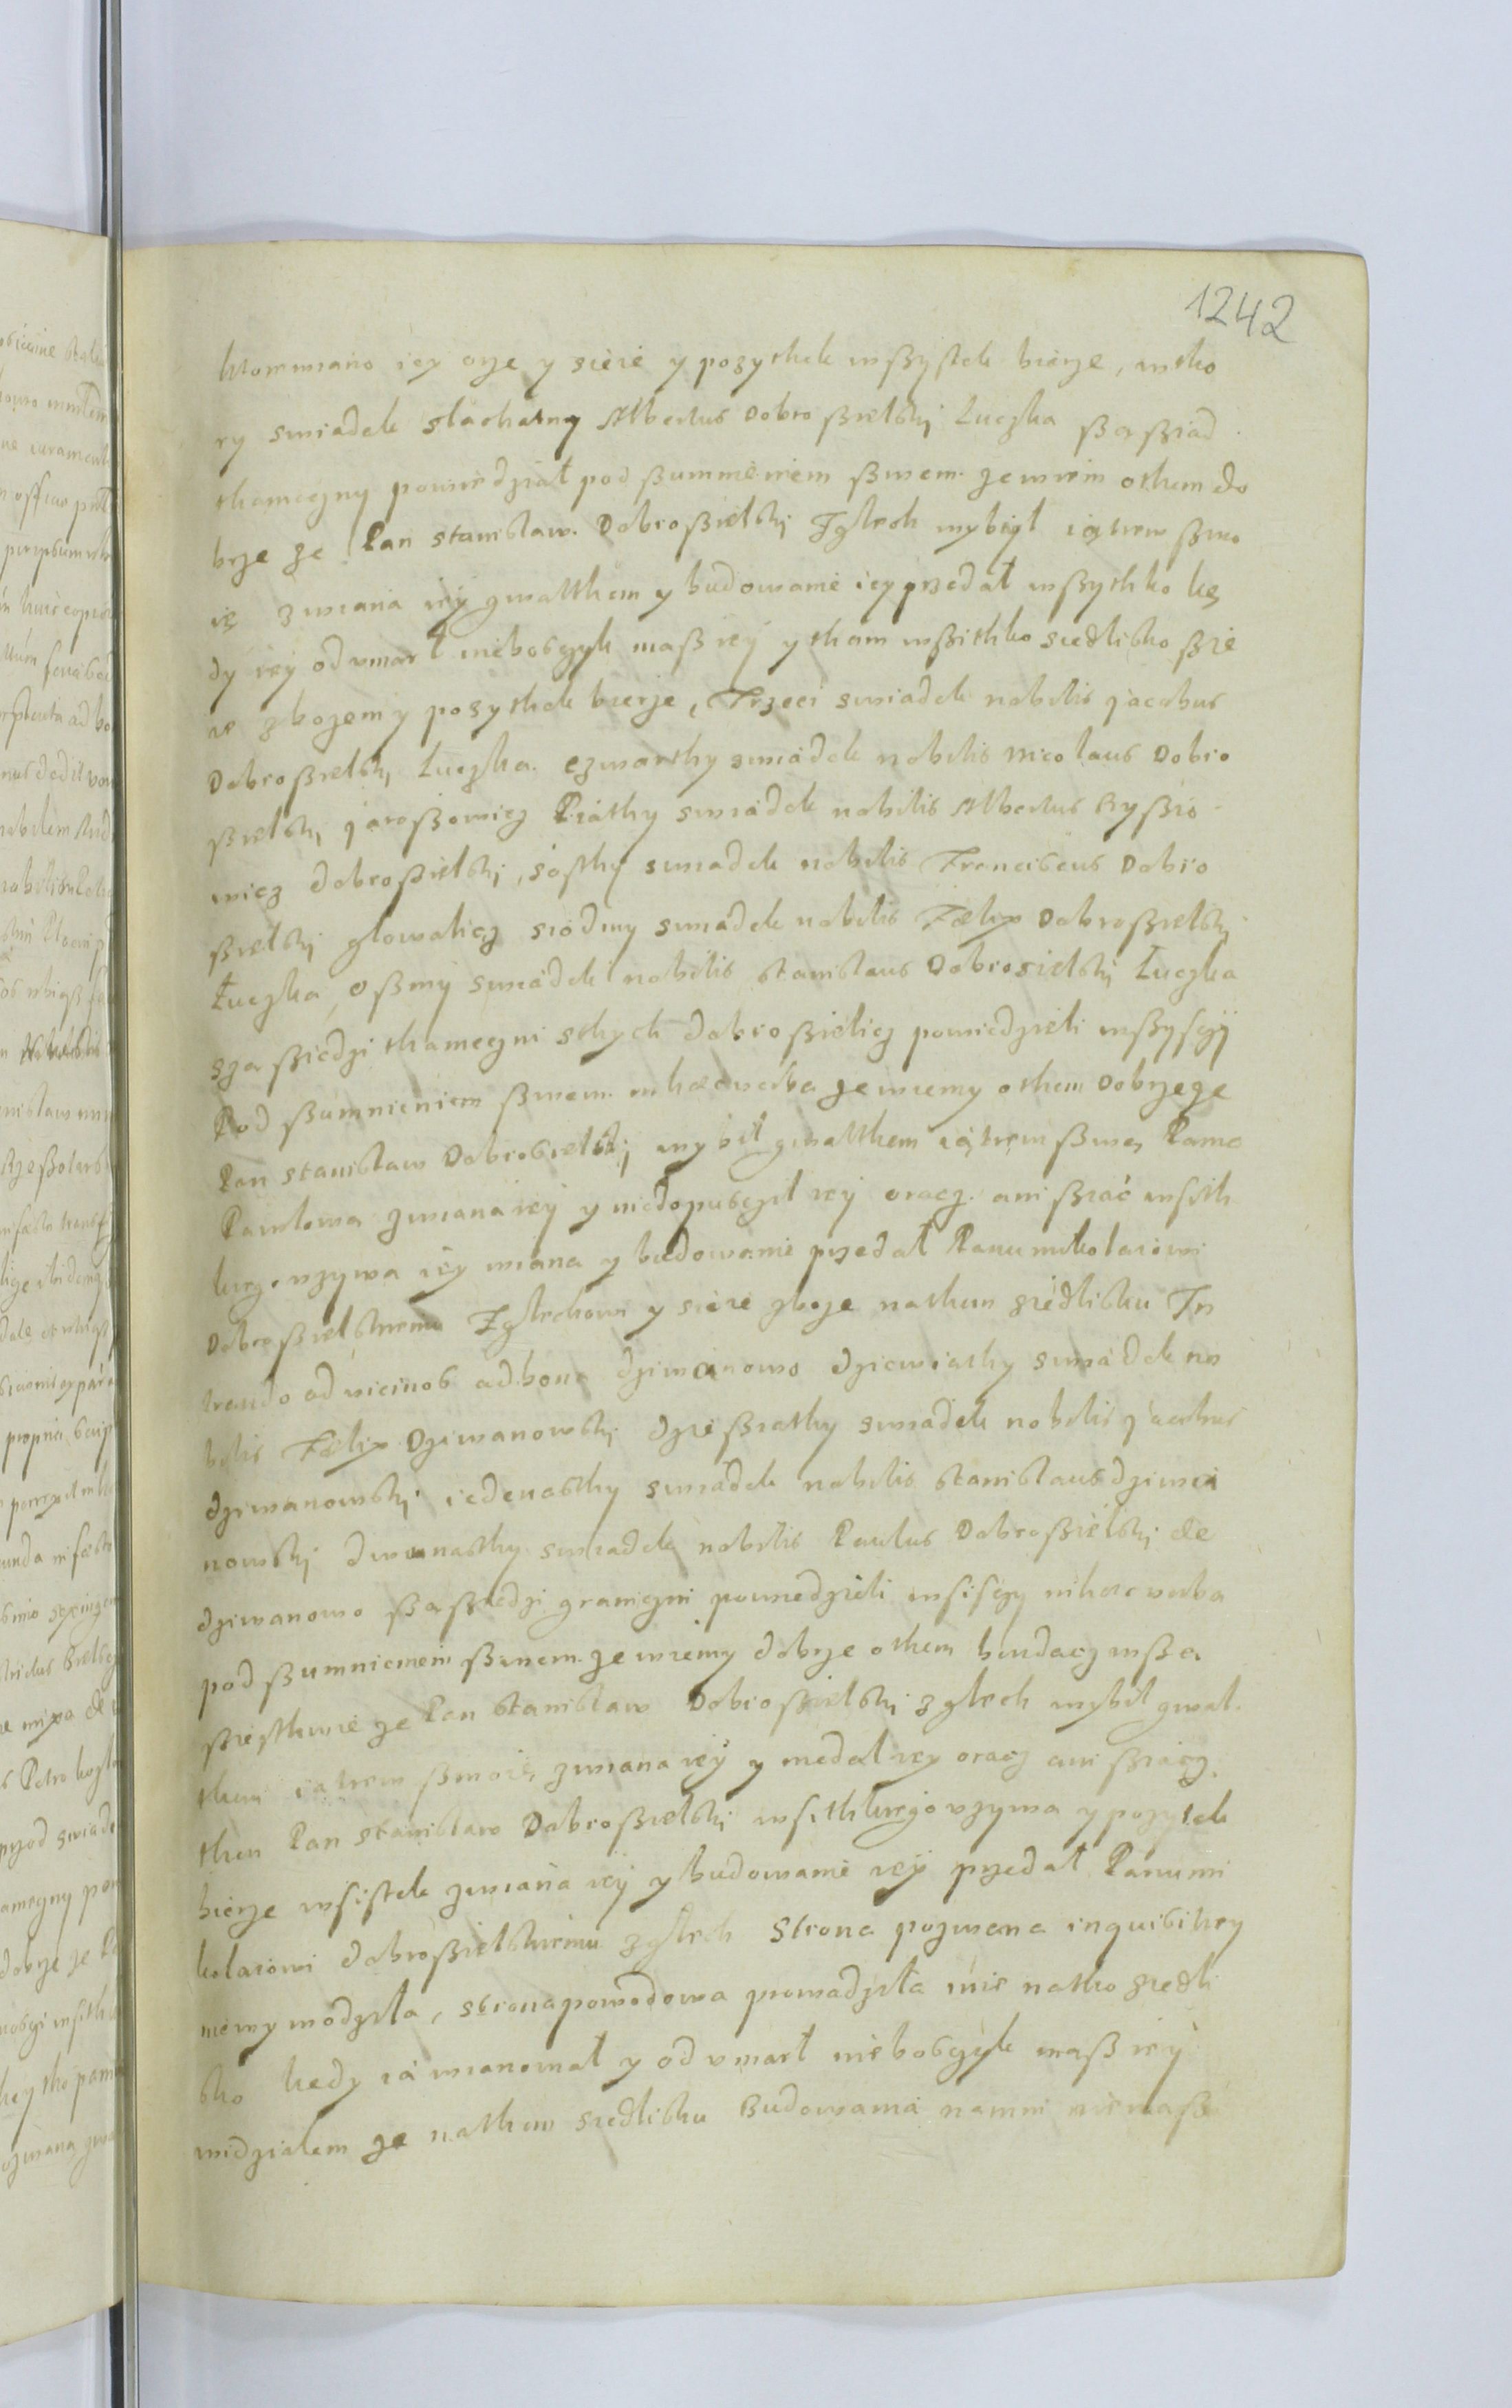 1242
wiano iey orze y sieie y pozythek wßyſtek bierze, wtho
ry swiadek slachatny Albertus Dobroßielskj Łuczka ßaßiad
thameczny powiedział pod ßummieniem ßwem ze wiem othem do
brze ze Pan stanisław Dobroßielskj Zgłech wybiył iątrew ßwo
ię zwiana iey gwałthem y budowanie iey przedał wßythko kę
dy iey odumarł nieboscyk mąß iey y tham wßithko siedlisko ßie
ie zbozem y pozythek bierze, Trzeci swiadek nobilis Jacobus
Dobroßielskj Łuczka czwarthy swiadek nobilis Nicolaus Dobro
ßielskj Jaroßowicz Piathy swiadek nobilis Albertus Ryßio
wicz dobroßielskj, sosthy swiadek nobilis Franciscus Dobro
ßielskj głowalicz siodmy swiadek nobilis Fælix Dobroßielskj
Łuczka, osßmy swiadek nobilis stanislaus Dobrosielskj Łuczka
sząßiedzi thameczni sthych dobroßielicz powiedzieli wßyscÿ
Pod ßumnieniem ßwem in hæc verba ze wiemy othem Dobrze ze
Pan stanisław Dobrosielskj wybił gwałthem iątrew ßwą Panią
Pawłowa zwiana iey y niedopuscził iey oracz ani ßiać wsith
kiego vzywa iey wiana y budowanie przedał Panu mikołaiowi
Dobroßielskiemu Zgłechowi y sieie zboze nathem siedlisku In
trando ad vicinos ad bona dziwanowo dziewiathy swiadek no
bilis Fælix Dziwanowskj dzießiathy swiadek nobilis Jacobus
dziwanowskj iedenasthy swiadek nobilis stanislaus dziwa
nowskj dwanasthy swiadek nobilis Paulus Dobroßielskj de
dziwanowo ßaßiedzi graniczni powiedzieli wsiscy in hæc verba
pod ßumnieniem ßwem ze wiemy dobrze othem bendacz wßą
ßiesthwie ze Pan stanisław Dobroßielskj zgłech wybił gwał
them iątrew ßwoię zwiana iey y niedał iey oracz ani ßiącz
then Pan stanisław Dobroßielskj wsithkiego vzywa y pozytek
bierze wsistek zwiana iey y budowanie iey przedał Panu mi
kołaiowi dobroßielskiemu zgłech Strona pozwana inquisitiey
niewywodziła, strona powodowa prowadziła mie natho siedli
sko kedy ią wianował y odumarł nieboscyk mąß iey
widziałem ze nathem siedlisku Budowania namni niemaß